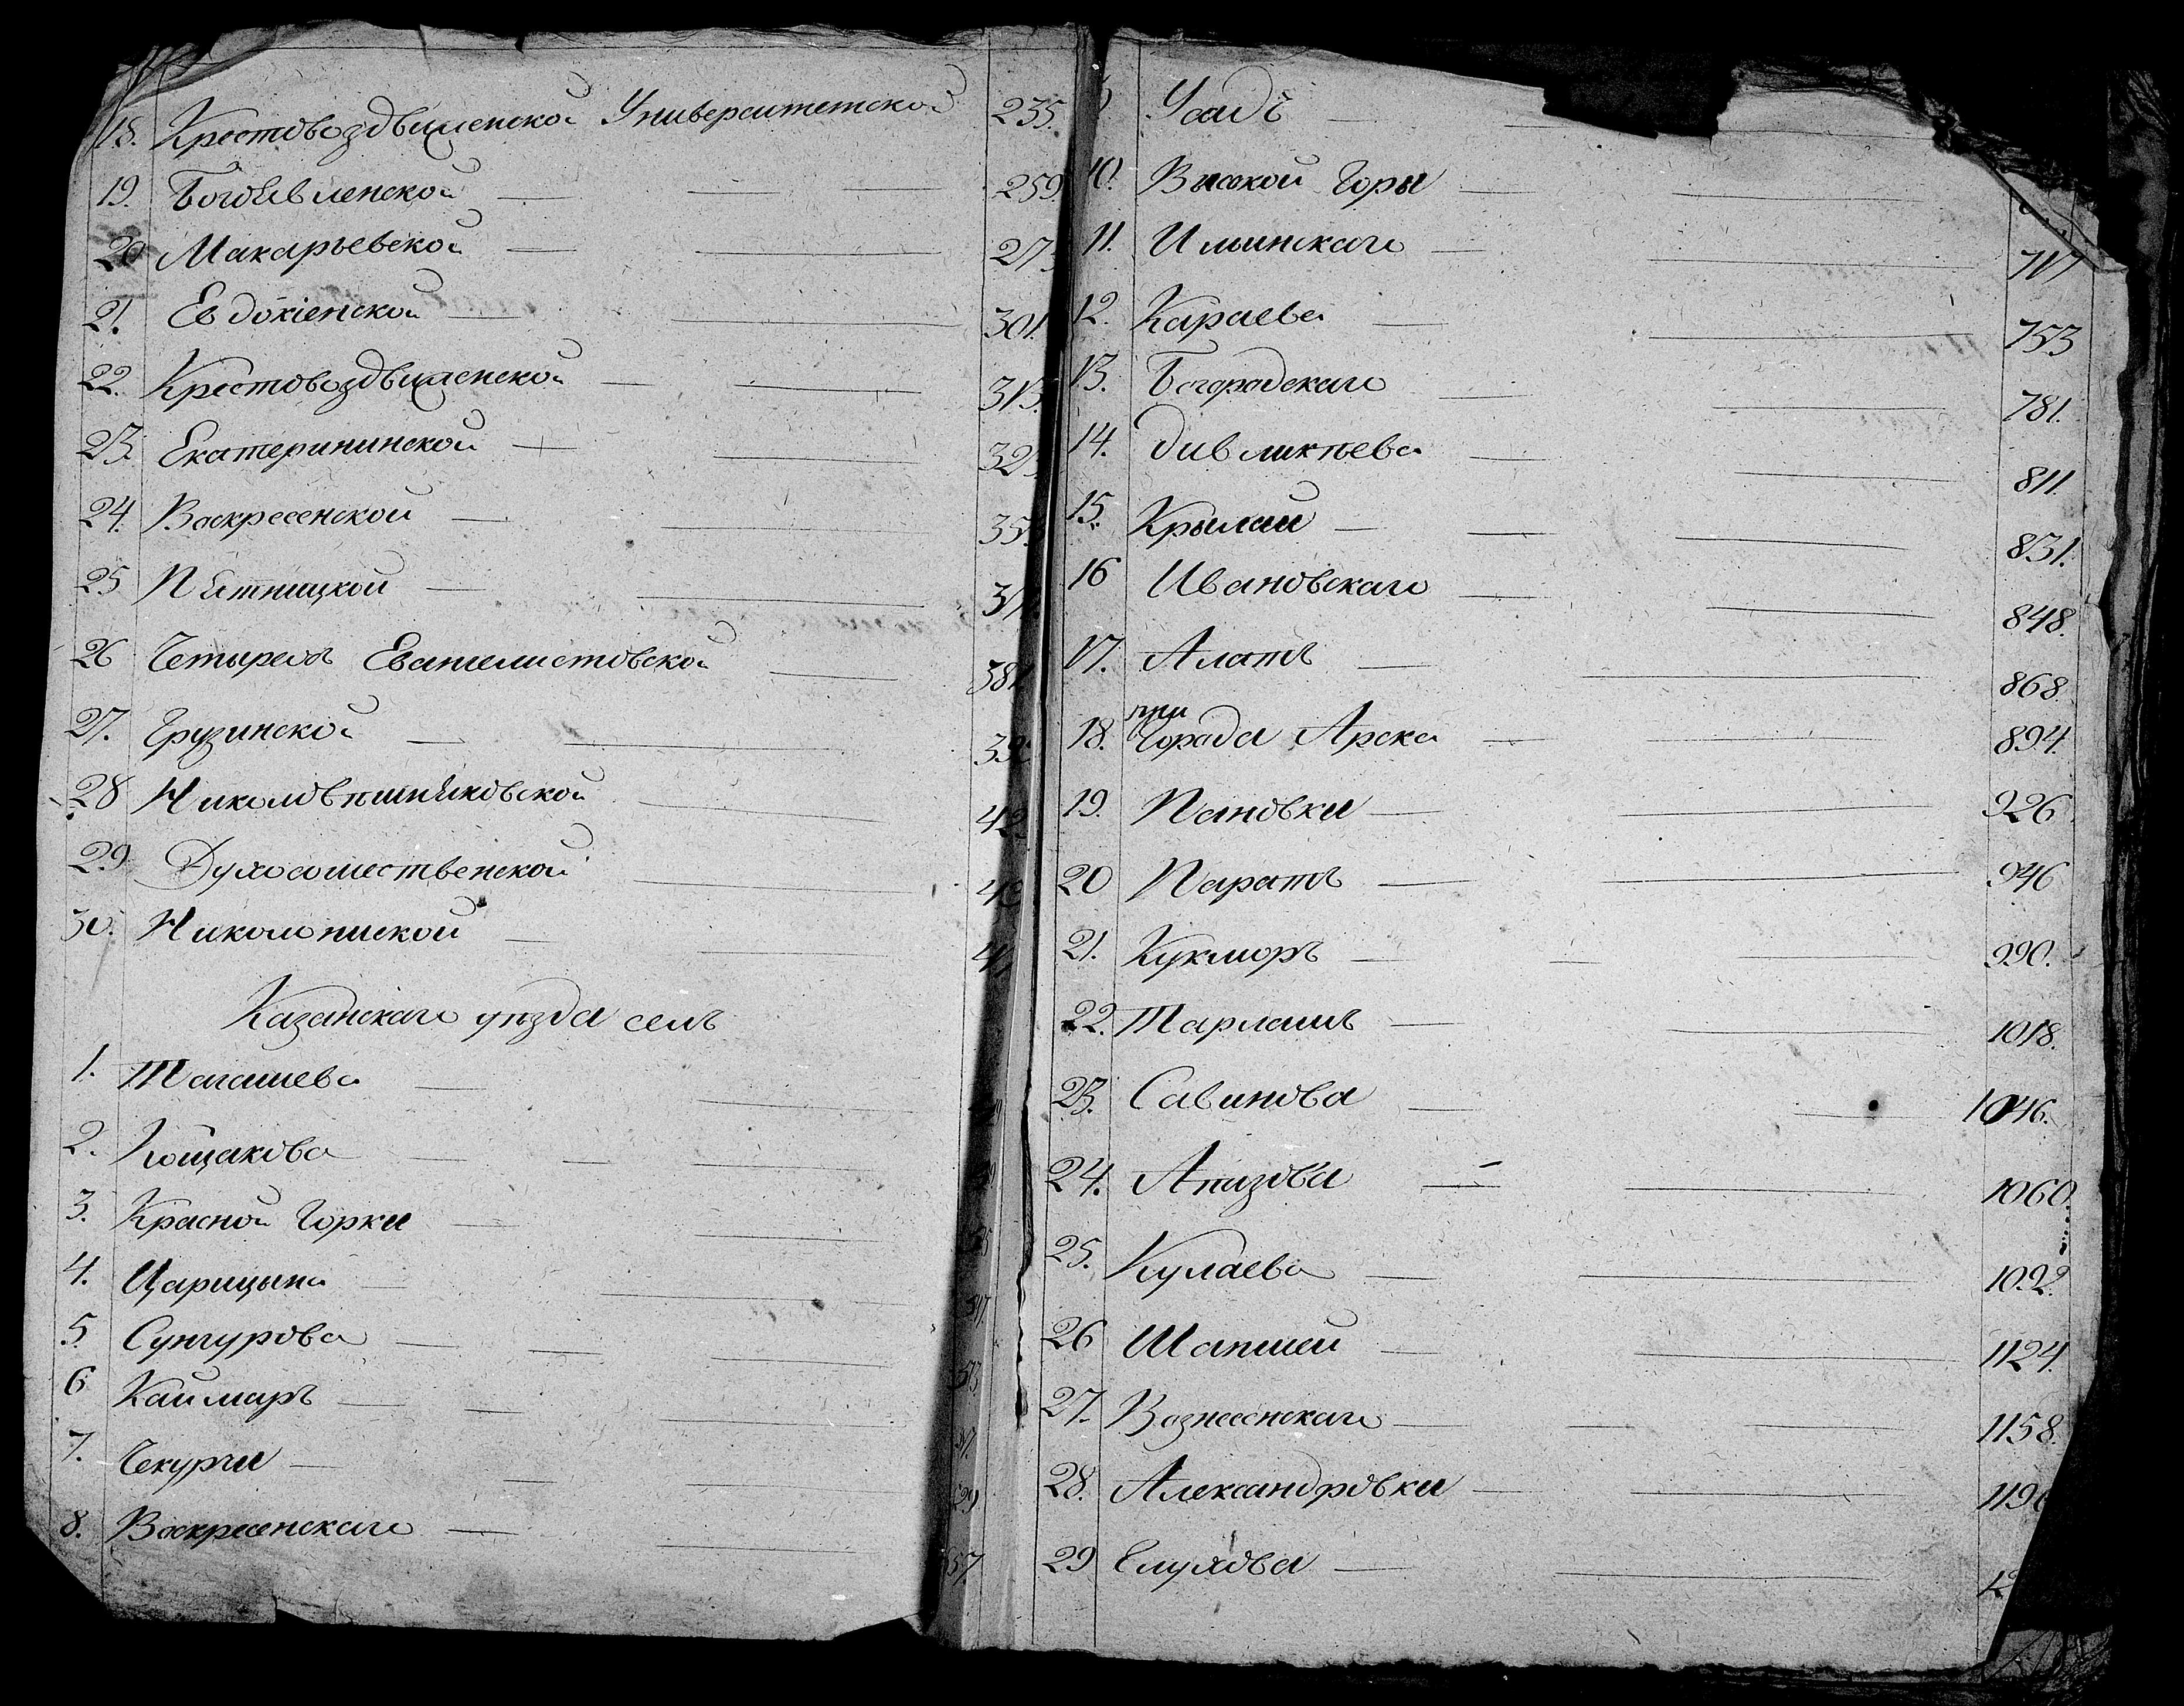 18. Крестовоздвиженской Университетской 235.
19. Богоявленской 259.
20 Макарьевской 27
21. Евдокіенской 301.
22. Крестовоздвиженской 313.
23. Екатерининской 32
24. Воскресенской 35
25 Пятницкой 37
26 Четырехъ Евангелистовской 381
27. Грузинской 39
28 Николовпишняковской 42
29 Духосошественской 43
30. Николонизской 4
Казанскаго уѣзда селъ
1. Тагашева
2. Кощакова
3. Красной Горки
4. Царицына
5. Сунгурова
6 Каймаръ
7. Чекурчи
8. Воскресенскаго 57
Усадъ
10. Высокой Горы
11. Ильинскаго 717
12. Караева 753
13. Богородскаго 781.
14. Дивликѣева 811.
15. Крылаи 831.
16 Ивановскаго 848.
17. Алатъ 868
18. при Города Арска 894
19. Пановки 926
20 Паратъ 946
21. Кукморъ 990.
22. Тарлаши 1018.
23. Савинова 1046.
24. Апазова 1060.
25. Кулаева 1092.
26 Шапшей 1124.
27. Вознесенскаго 1158.
28. Александровки 119
29 Елухова 12